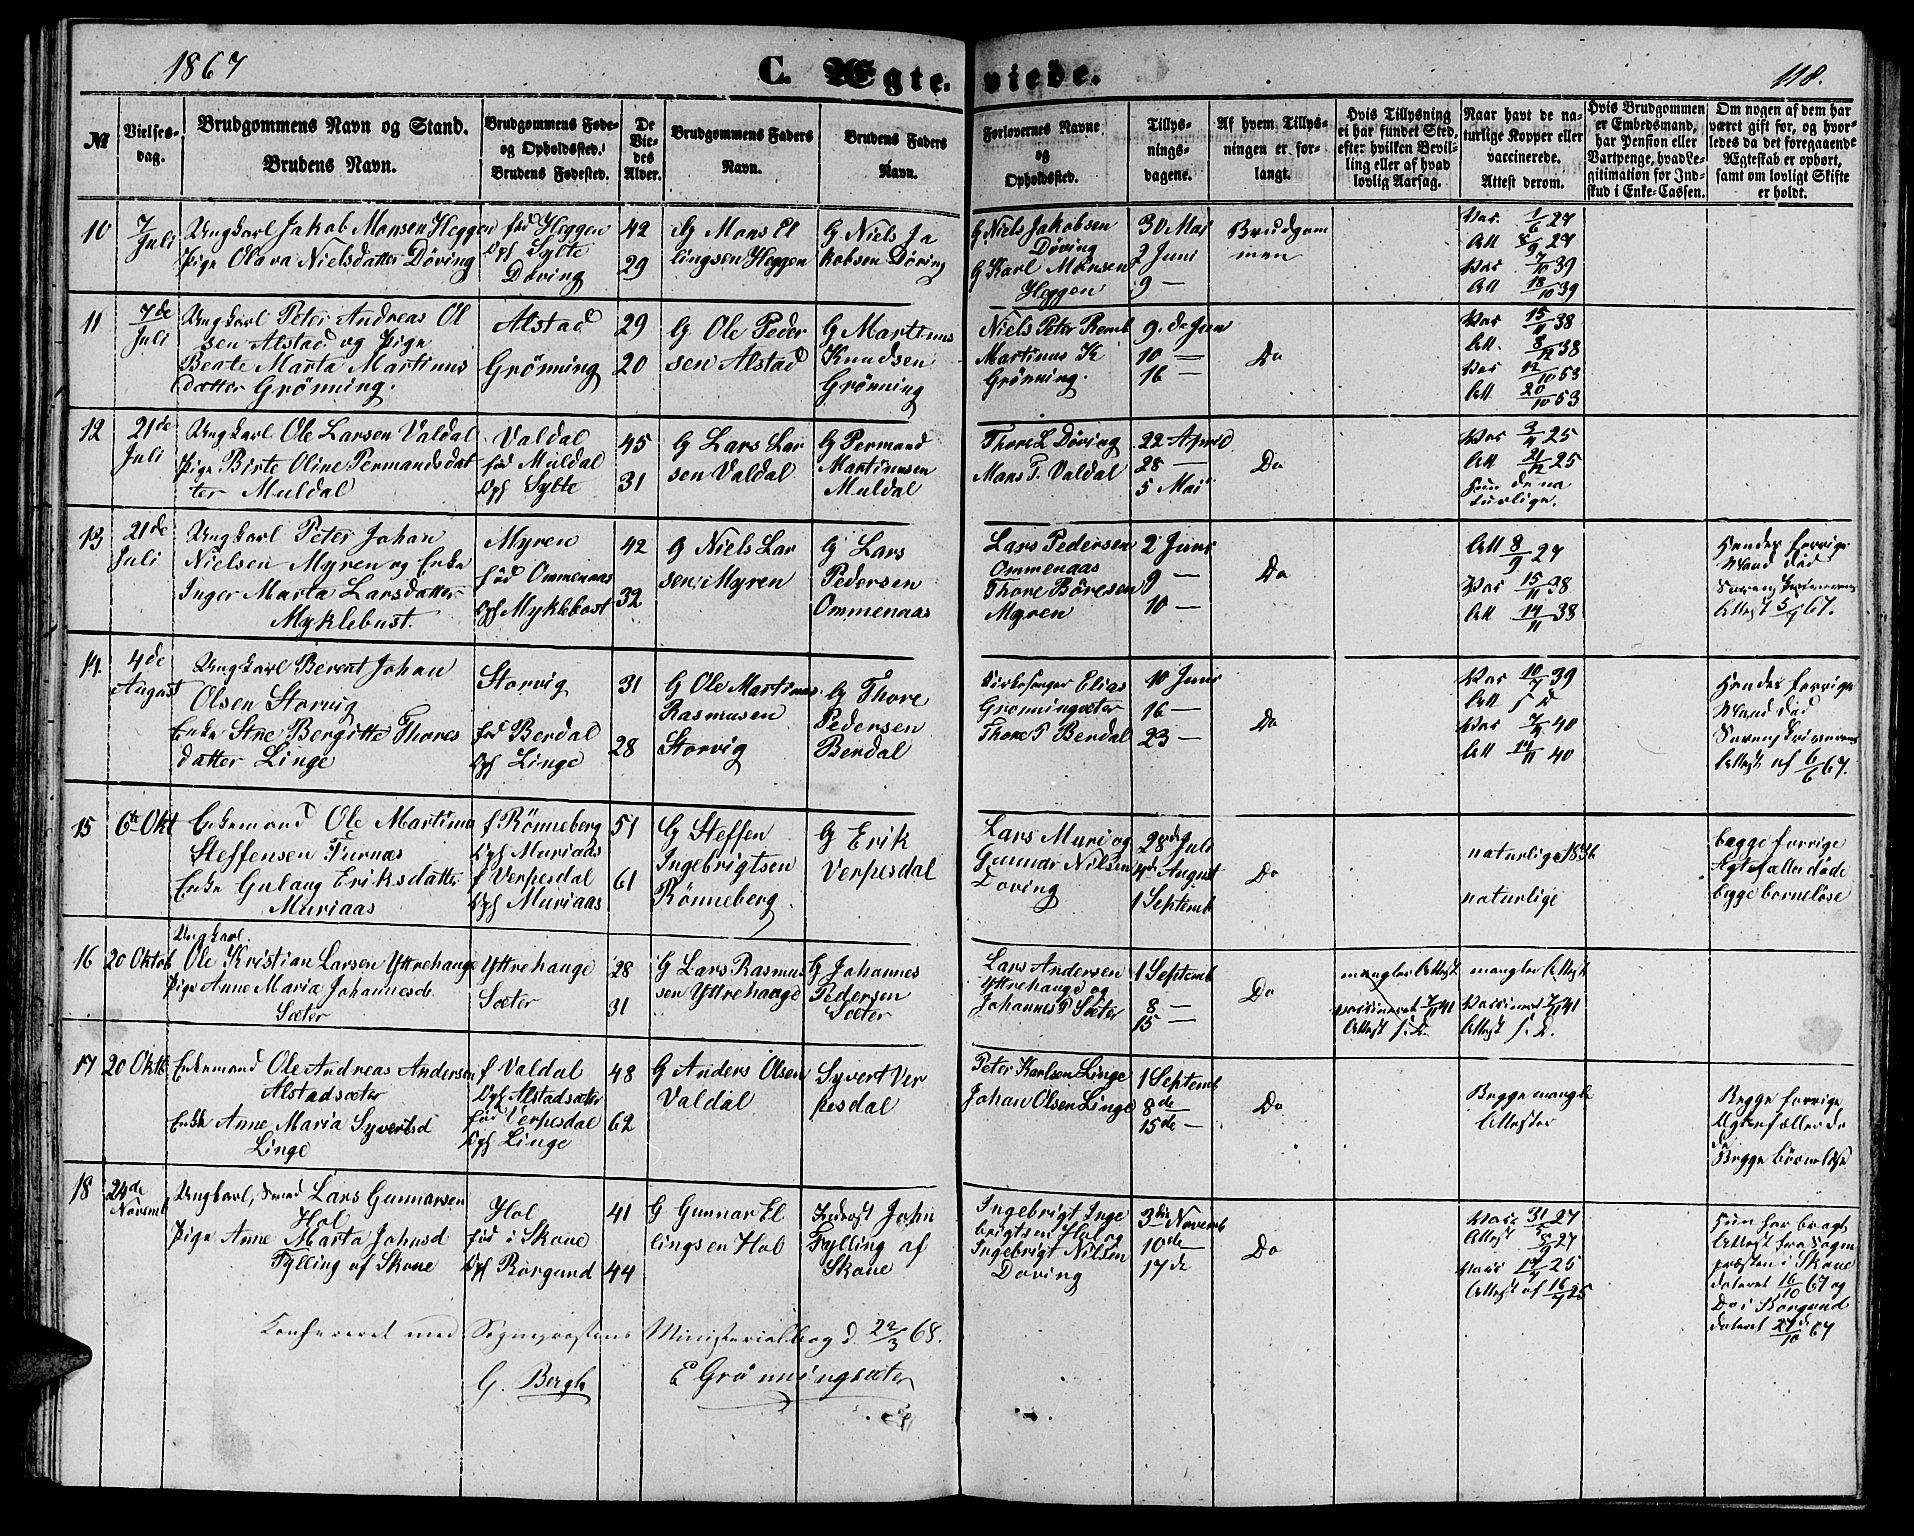 1867
C. Ægte-
viede.
118.
No
Vielses-
dag.
Brudgommens Navn og Stand.
Brudens Navn.
Brudgommens Føde-
og Opholdssted.
Brudens Fødested.
De
Vie-
des
Alder.
Brudgommens Faders
Navn.
Brudens Faders
Navn.
Forlovernes Navne
og
Opholdssted.
Tillys-
nings-
dagene.
Af hvem Tillys-
ningen er for-
langt.
Hvis Tillysning
ei har fundet Sted,
efter hvilken Bevil-
ling eller af hvad
lovlig Aarsag.
Naar havt de na-
turlige Kopper eller
vaccinerede.
Attest derom.
Hvis Brudgommen
er Embedsmand,
har Pension eller
Vartpenge, hvad Le-
gitimation for Ind-
skud i Enke-Cassen.
Om nogen af dem har
været gift før, og hvor-
ledes da det foregaaende
Ægteskab er ophørt,
samt om lovligt Skifte
er holdt.
10
7/
Juli
Ungkarl Jakob Monsen Heggen
Pige Olava Nielsdatter Döving
fød Heggen
Opf Sylte
Döving
42
29
G Mons El
lingsen Heggen
G Niels Ja
kobsen Döving
G Niels Jakobsen
Döving
G Karl Monsen
Heggen
30 Mai
2 Juni
9 —
Brudgom
men
Vac 1/6 27
Att 8/9 27
Vac 7/10 39
Att 18/10 39
11
7de
Juli
Ungkarl Peter Andreas Ol
sen Alstad og Pige
Beate Marta Martinus
datter Grönning.
Alstad
Grönning
29
20
G Ole Peder
sen Alstad
G Martinus
Knudsen
Grönning
Niels Peter Remb
Martinus K
Grönning.
9. de Juni
10 —
16 —
Do
Vac 15/11 38
Att. 8/12 38
Vac 12/10 53
Att 20/10 53
12
21de
Juli
Ungkarl Ole Larsen Valdal
Pige Birte Oline Permandsdat
ter Muldal
Valdal
fød Muldal
Opf Sylte
45
31
G Lars Lar
sen Valdal
G Permand
Martinusen
Muldal
Thore L Döving
Mons P. Valdal
22 April
28 —
5 Mai
Do
Vac 3/11 25
Att 21/12 25
hun de na
turlige.
13
21de
Juli
Ungkarl Peter Johan
Nielsen Myren og Enke
Inger Marta Larsdatter
Myklebust.
Myren
fød Ommenaas
Opf Myklebost
42
32
G Niels Lar
sen Myren
G Lars
Pedersen
Ommenaas
Lars Pedersen
Ommenaas
Thore Böresen
Myren
2 Juni
9 —
10 —
Do
Att 8/9 27
Vac 15/11 38
Att 14/11 38
Hendes forrige
Mand død
Attest 5/7 67.
14.
4de
August
Ungkarl Berent Johan
Olsen Storvig
Enke Stne Bergitte Thores
datter Linge
Storvig
fød Berdal
Opf Linge
31
28
G Ole Martinus
Rasmusen
Storvig
G Thore
Pedersen
Berdal
Kirkesanger Elias
Grönningsæter
Thore P Berdal
10 Juni
16 —
23 —
Do
Vac 10/7 39
Att s d
Vac 7/9 40
Att 14/11 40
Hendes forrige
Mand død
Sorenskriverens
Attest af 6/6 67.
15
6te Okt
Enkemand Ole Martinus
Steffensen Furnas
Enke Gulaug Eriksdatter
Muriaas
f Rönneberg
Opf Muriaas
f Verpesdal
Opf Muriaas
51
61
G Steffen
Ingebrigtsen
Rönneberg
G Erik
Verpesdal
Lars Muri og
Gunnar Nilsen
Doving
28de Juli
4de August
1 Septemb
Do
naturlige 1836
naturlige
begge forrige
Ægtefæller døde
begge barnelöse
16
20 Oktob
Ungkarl
Ole Kristian Larsen Yttrehauge
Pige Anne Maria Johannesd.
Sæter
Yttrehauge
Sæter
28
31
G Lars Rasmus
sen Yttrehauge
G Johannes
Pedersen
Sæter
Lars Andersen
Yttrehauge og
Johannes P Sæter
1 Septemb
8 —
15 —
Do
mangler Attest
vaccineret 7/11 41
Attest s. D.
mangler Attest
Vaccineret 7/11 41
Attest s. D.
17
20 Oktb
Enkemand Ole Andreas Andersen
Alstadsæter
Enke Anne Maria Syvertsd
Linge
f Valdal
Opf Alstadsæter
fød Verpesdal
Opf Linge
48
62
G Anders Olsen
Valdal
Syvert Ver
pesdal
Peter Karlsen Linge
Johan Olsen Linge
1 Septemb
8de —
15 de —
Do
Begge mangle
Attester
Begge forrige
Ægtefæller dö
de
Begge börnelöse
18
24de
Novemb
Ungkarl, Smed Lars Gunnarsen
Hol
Pige Anne Marta Johnsd
Fylling af Skoue
Hol
fød i Skoue
Opf Borgund
41
44
G Gunnar El
lingsen Hol
Inderst John
Fylling af
Skoue
Ingebrigt Inge
brigtsen Hol og
Ingebrigt Nilsen
Doving
3die Novemb
10de —
17 de
Do
Vacc 31/5 27
Attest 5/9 27
Vacc 14/7 25
Attest af 16/9 25
Hun har bragt
Attest fra Sogne
præsten i Skoue
dateret 16/10 67 og
Do i Borgund
dateret 27/10 67
Konfereret med Sognepræstens Ministerialbog d. 22/3 68.
G. Bergh
E Grönningsæter